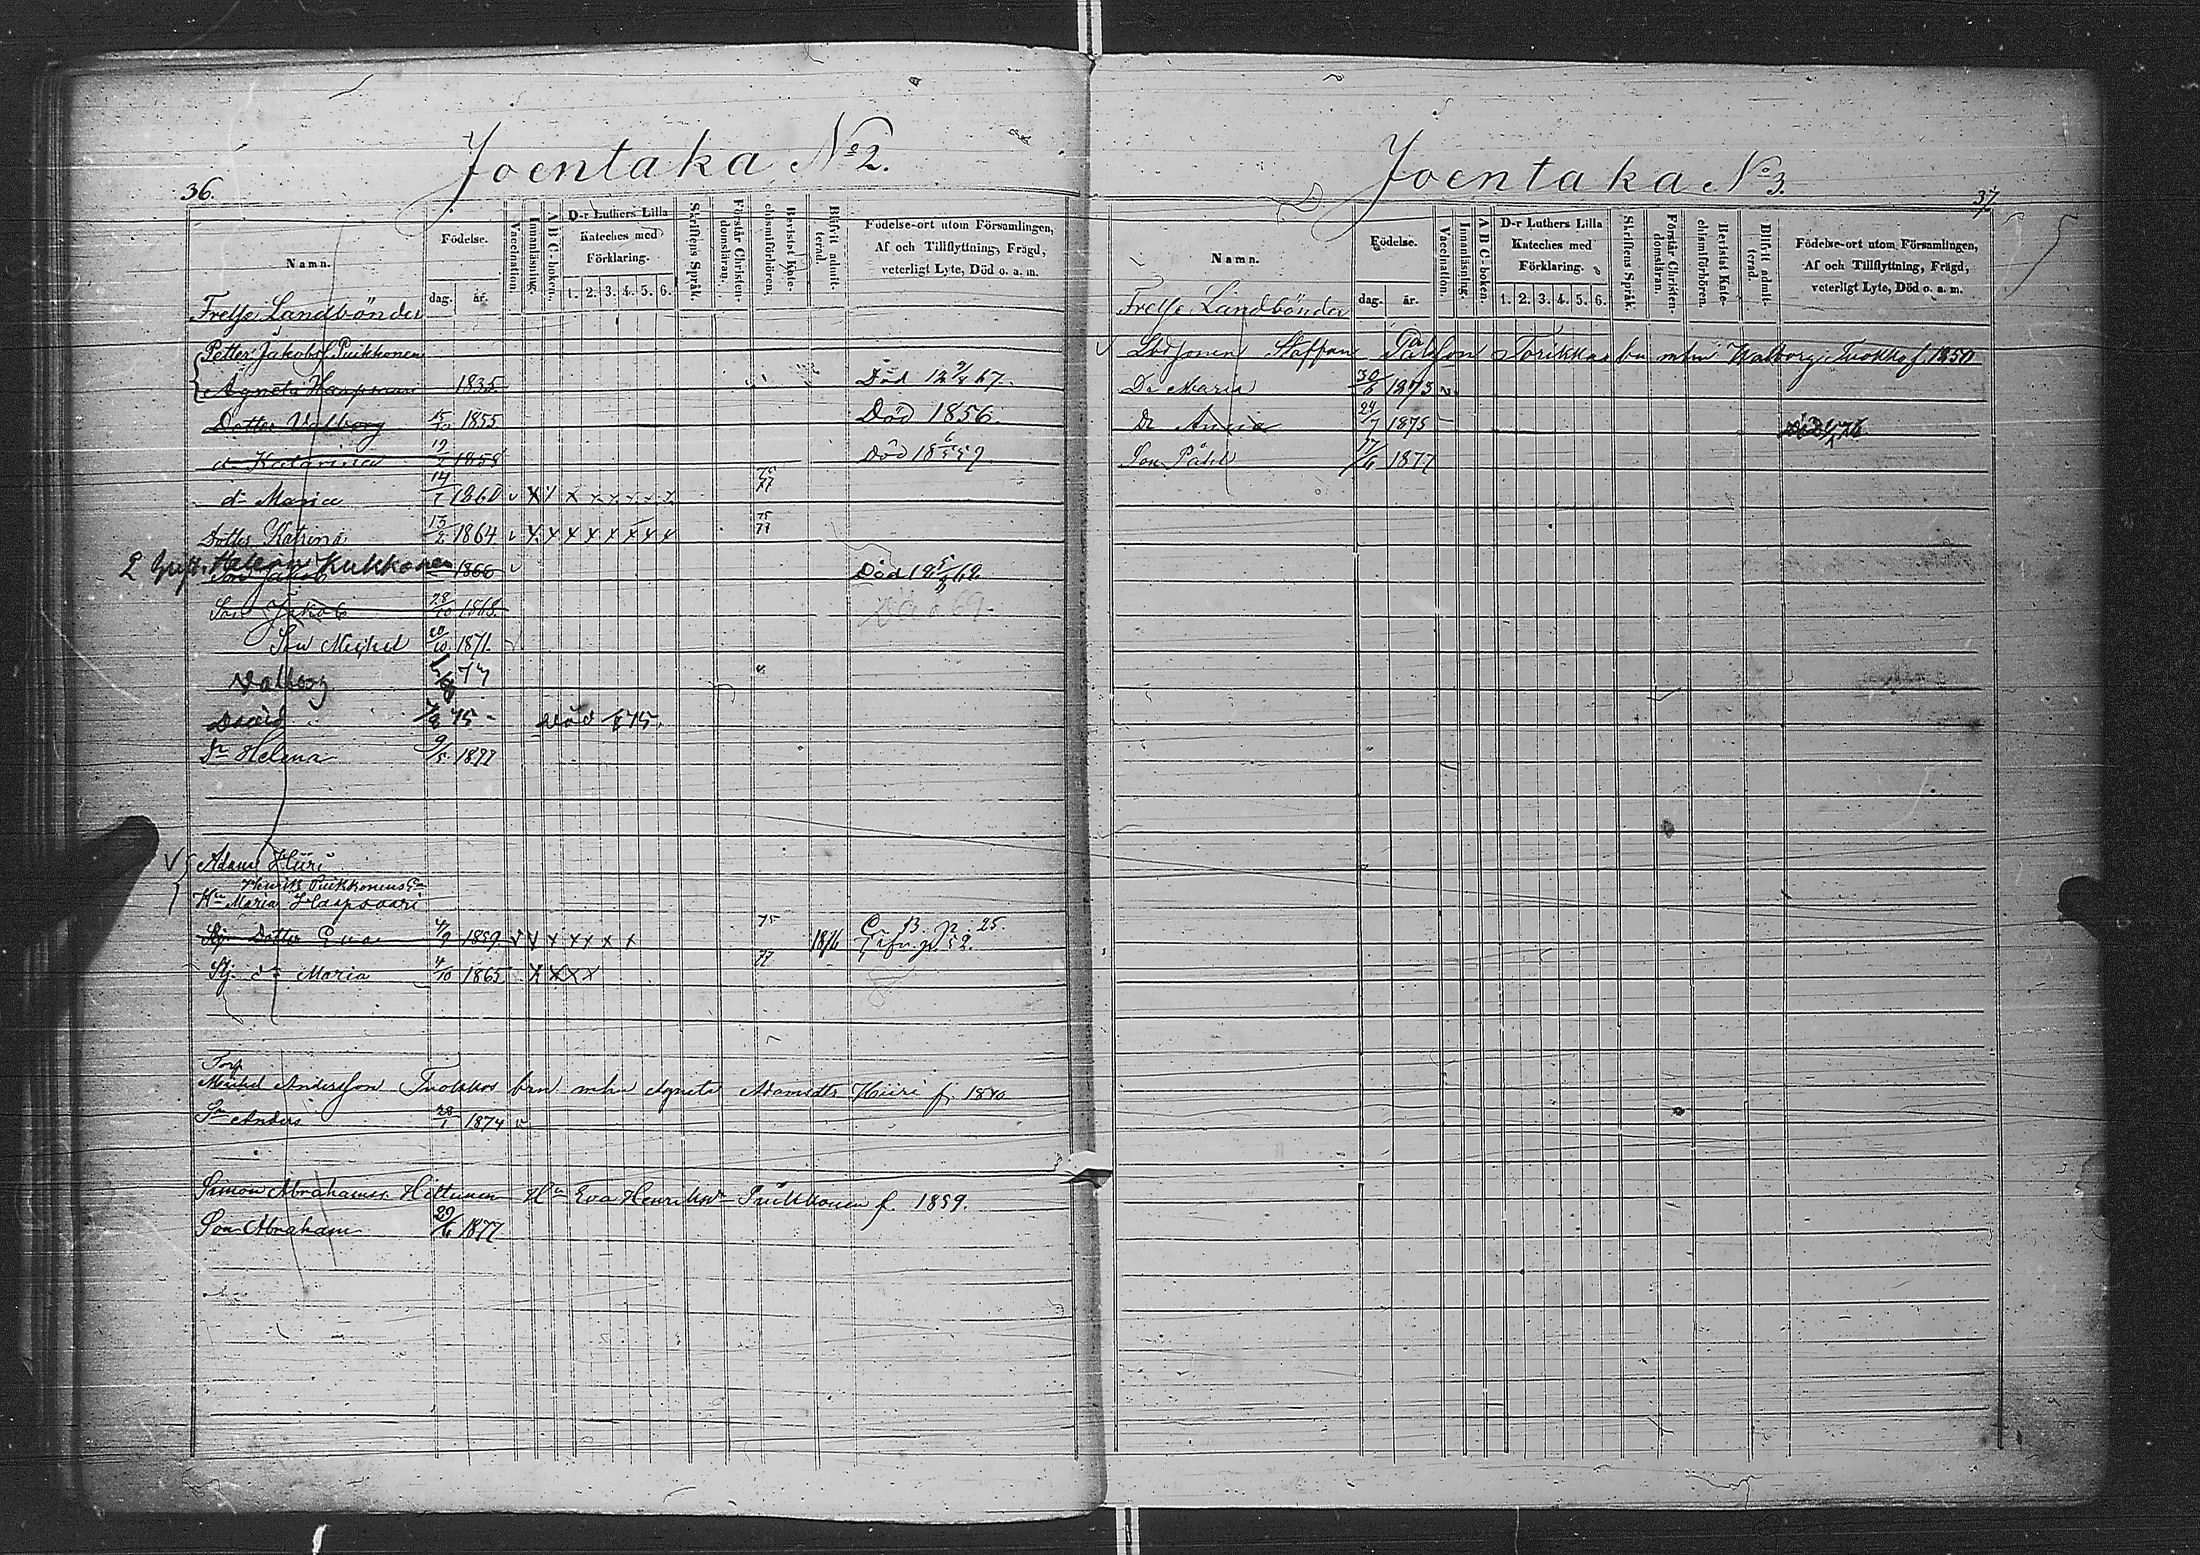 36.
Joentaka No 2.
Namn.
Födelse.
dag.
år.
Vaccination.
Innanläsning.
A B C-boken.
D-r Luthers Lilla
Kateches med
Förklaring.
1. 2. 3. 4. 5. 6.
Skriftens Språk.
Förstår Christen-
domsläran.
Bevistat Kate-
chismiförhören.
Blifvit admit-
terad.
Födelse-ort utom Församlingen,
Af och Tillflyttning, Frägd,
veterligt Lyte, Död o. a. m.
Frelse Landbönder
Petter Jakobss. Puikkonen
Agneta Haapsaari 1835 Död 12 9/8 67.
Dotter Valborg 15/10 1855 Död 1856.
d:r Katarina 1858 Död 18 6/5 59
d:r Maria 14/1 1860 v x x x x x x x x 75 77
Dotter Katrina 13/2 1864 v x x x x x x x x 75 77
2 hust. Helena Kukkonen
Son Jakob 1866 v Död 18 68
Son Jakob 28/10 1868
Son Michel 20/10 1871.
Valborg 74
David 7/8 75 - Död 75.
Dr Helena 9/5 1877
Adam Hiiri
Henrik Puikkonens En
Hu Maria Haapsaari
Stj. Dotter Eva 4/9 1859 v x x x x x x 75 1876 C. B. p. 25.
Stj. dr Maria 4/10 1865 x x x x 77
Torp
Michel Andersson Tuokkos brn mhu Agneta Adamsdtr Hiiri f. 1840
Sn Anders 28/1 1874 v
Simon Abrahamss. Hiltunen Hu Eva Henriksdr Puikkonen f. 1859.
Son Abraham 29/6 1877
Joentaka No 3.
37
Namn.
Födelse.
dag.
år.
Vaccination.
Innanläsning.
A B C-boken.
D-r Luthers Lilla
Kateches med
Förklaring.
1. 2. 3. 4. 5. 6.
Skriftens Språk.
Förstår Christen-
domsläran.
Bevistat Kate-
chismiförhören.
Blifvit admit-
terad.
Födelse-ort utom Församlingen,
Af och Tillflyttning, Frägd,
veterligt Lyte, Död o. a. m.
Frelse Landbönder
Staffan Torikkas bn mhu Walborg Tuokko f. 1850
Dr Maria 30/6 1873
Dr Anna 24/7 1875
Son Påhl 17/6 1877